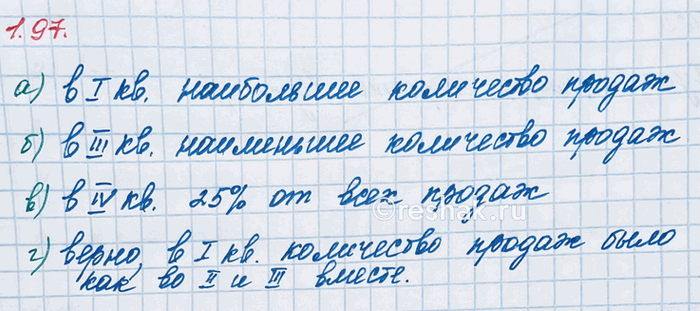 1.97.
а) в I кв. наибольшее количество продаж
б) в III кв. наименьшее количество продаж
в) в IV кв. 25% от всех продаж
©reshak.ru
г) верно, в I кв. количество продаж было
как во II и III вместе.